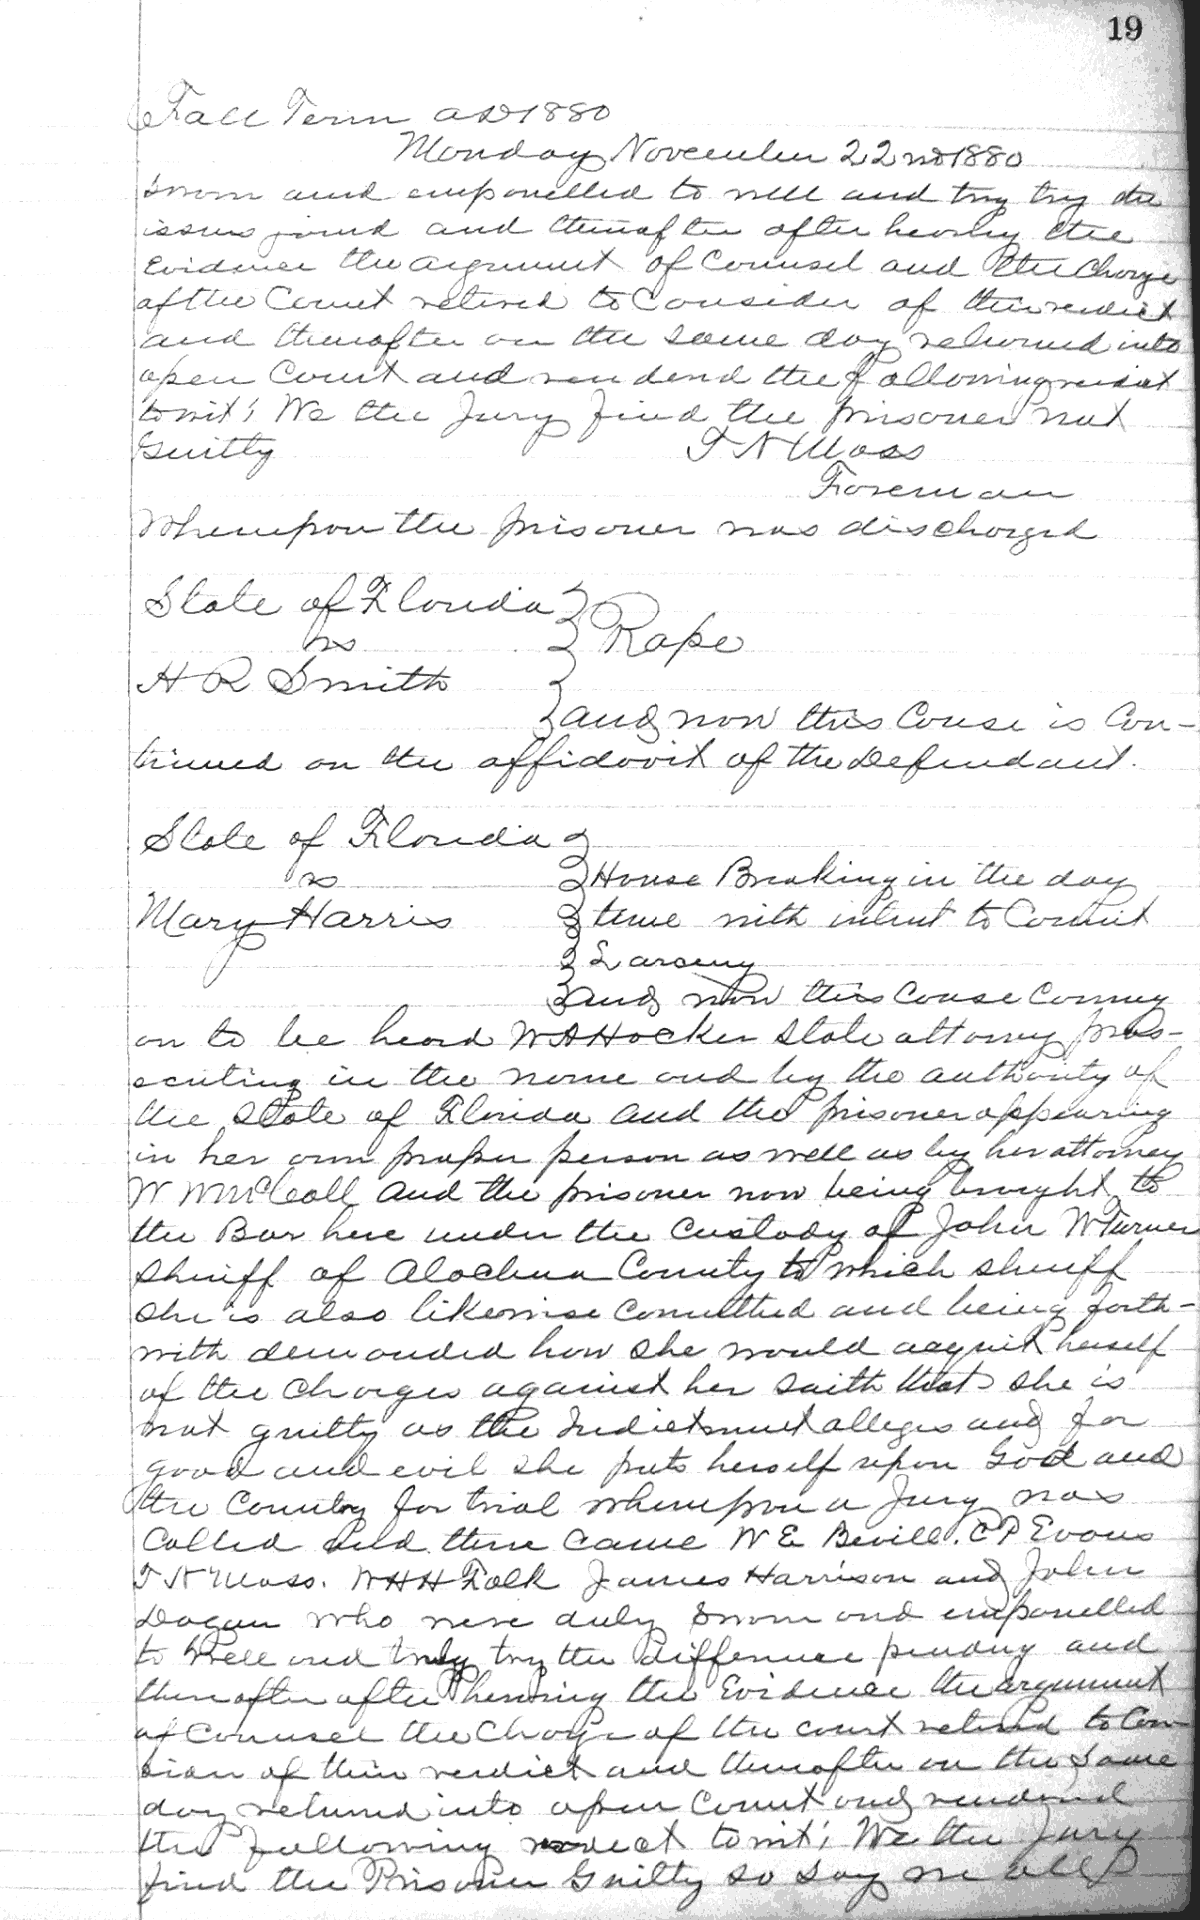 19
Fall Term AD 1880
Monday November 22nd 1880
sworn and empanelled to well and try try the
issues joined and thereafter after hearing the
Evidence the argument of Counsel and the Charge
of the Court retired to Consider of their verdict
and thereafter on the same day returned into
open Court and rendered the following verdict
towit; We the Jury find the prisoner not
Guilty T N Moss
Foreman
Whereupon the prisoner was discharged
State of Florida
vs Rape
H R Smith
and now this Cause is Con-
tinued on the affidavit of the Defendant.
State of Florida
vs House Breaking in the day
Mary Harris time with intent to Commit
Larceny
and now this Cause Coming
on to be heard W A Hocker State attorney pros-
ecuting in the name and by the authority of
the State of Florida and the prisoner appearing
in her own proper person as well as by her attorney
W W McCall and the prisoner now being brought to
the Bar here under the Custody of John W Turner
Sheriff of Alachua County to which sheriff
she is also likewise Committed and being forth-
with demanded how she would acquit herself
of the Charges against her saith that she is
not guilty as the Indictment alleges and for
good and evil she puts herself upon God and
the Country for trial whereupon a Jury was
Called and there came W E Bevill. C P Evans
T N Moss. W H H Falk James Harrison and John
Dogan who were duly sworn and empanelled
to well and truly try the difference pending and
thereafter after hearing the Evidence the argument
of Counsel the Charge of the court retired to Con
sider of their verdict and thereafter on the same
day returned into open Court and rendered
the following verdict towit; We the Jury
find the Prisoner Guilty so say we all